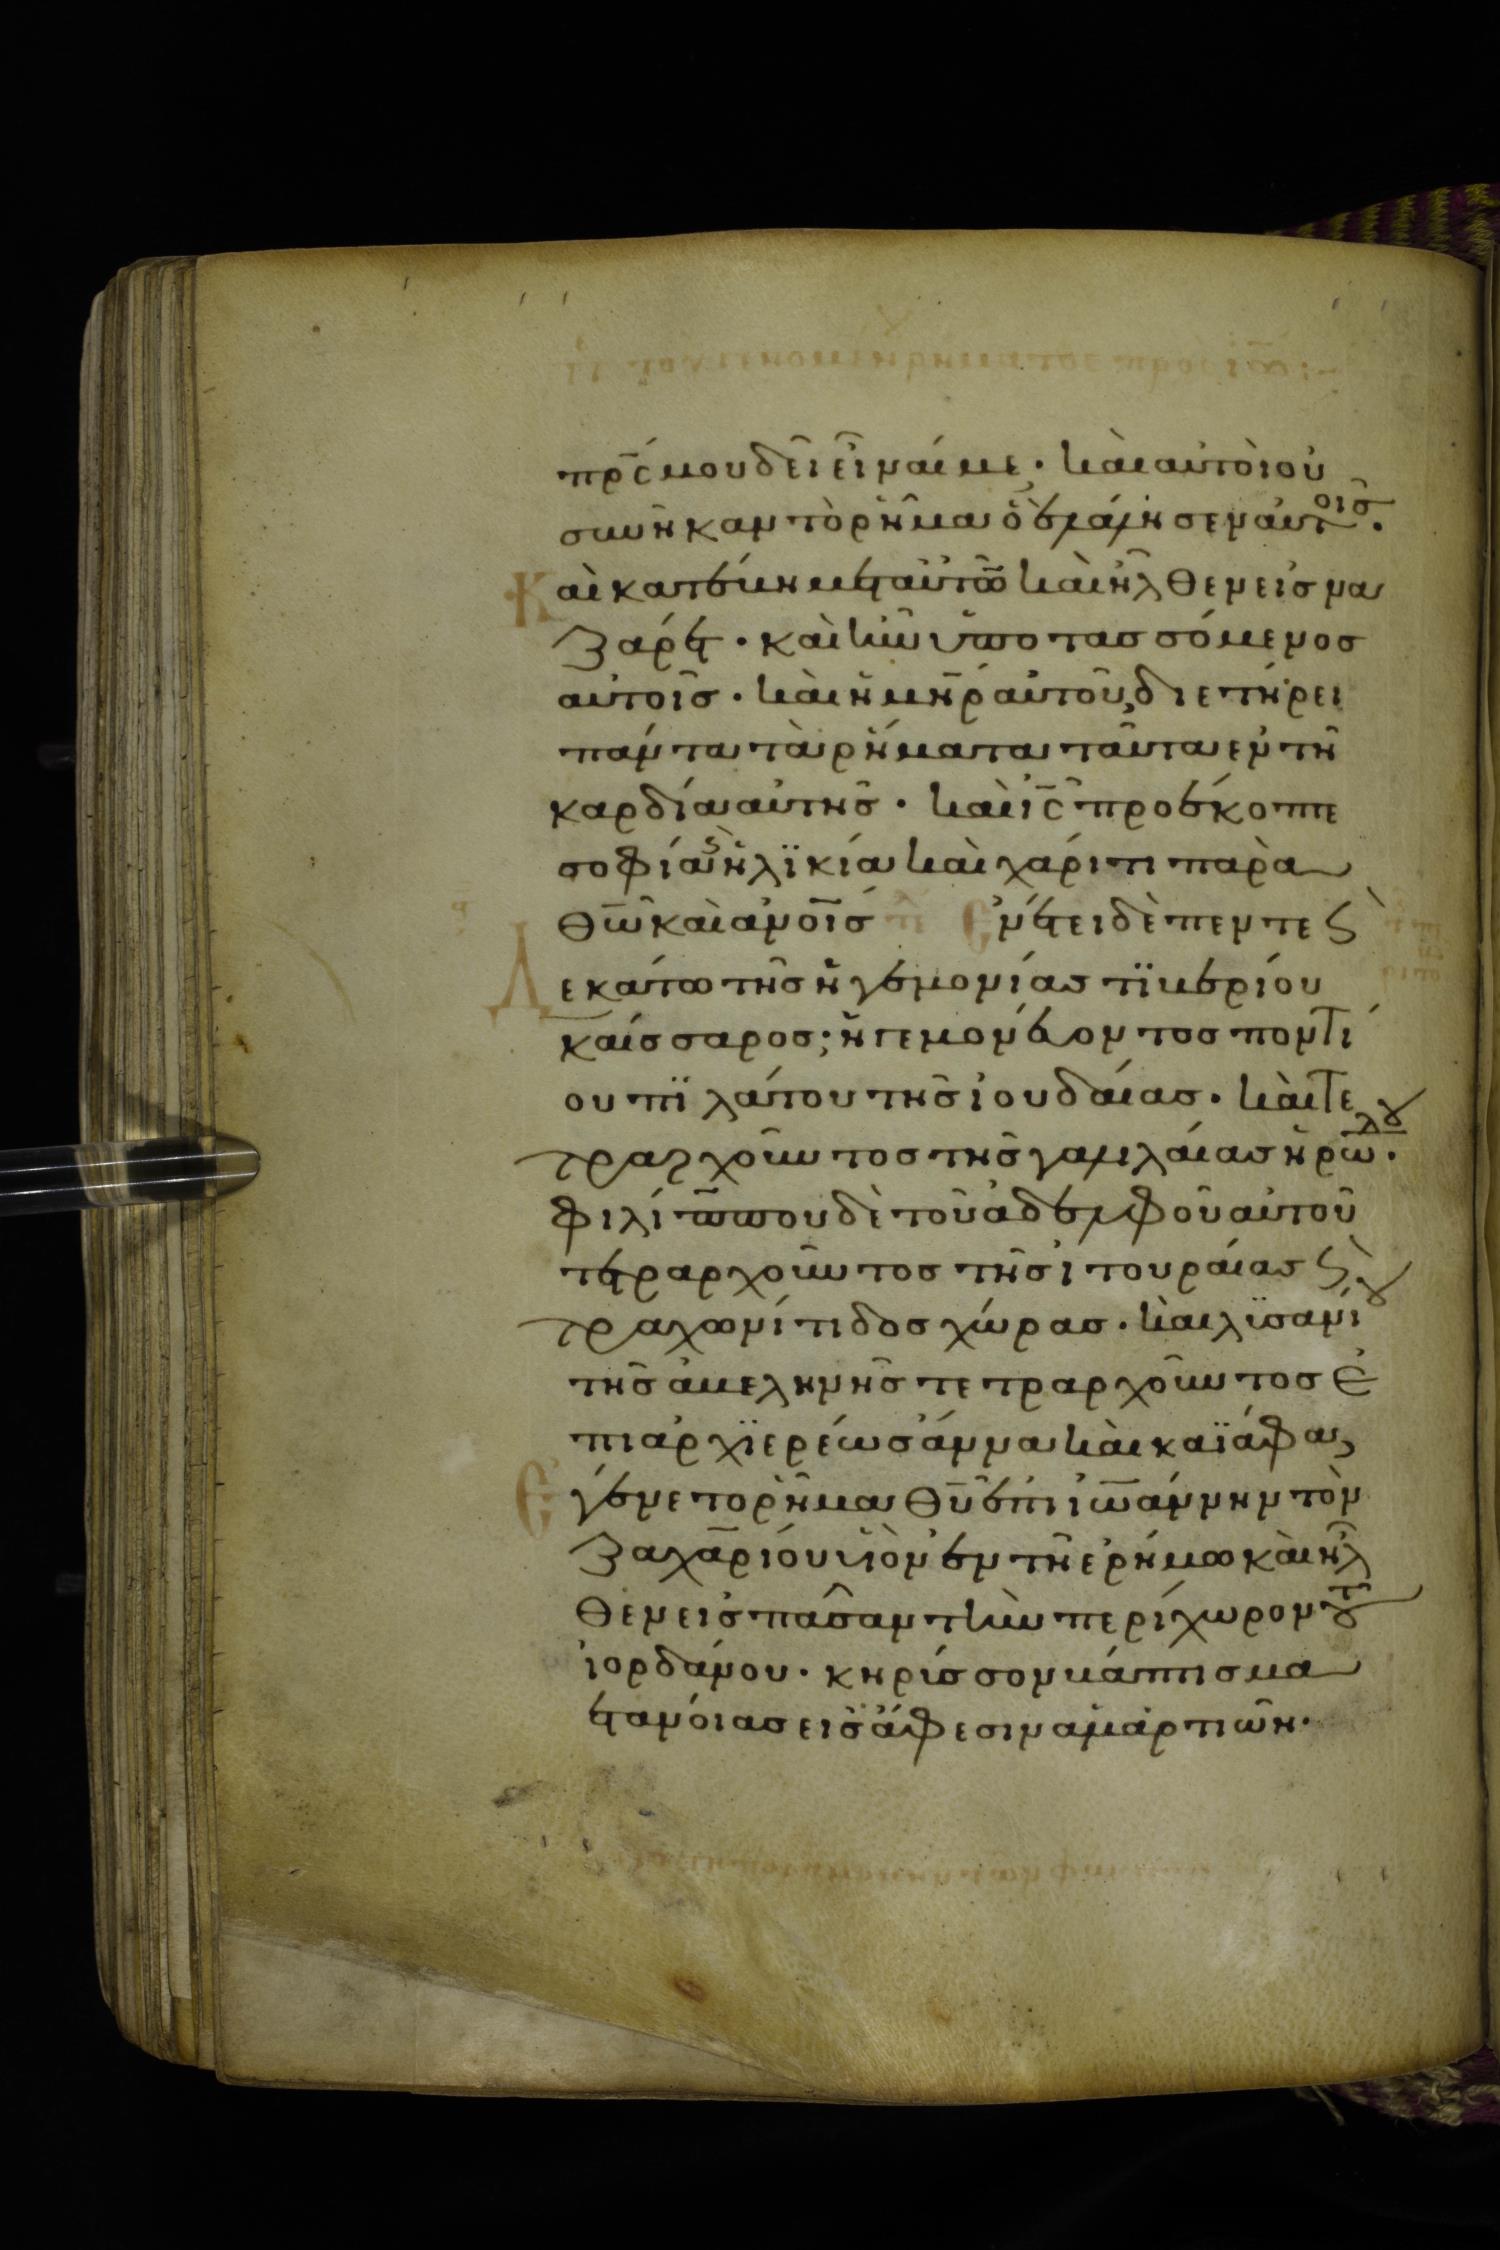 πρ̅ς μου δεῖ εἶναί με · καὶ αὐτοὶ οὐ
συνῆκαν τὸ ρῆμα ὃ ἐλάλησεν αὐτοῖς ·
Καὶ κατέβη μετ αὐτῶν καὶ ἦλθεν εἰς να
ζαρέτ · καὶ ἦν ὑποτασσόμενος
αὐτοῖς · καὶ ἡ μη̅ρ αὐτοῦ, διετήρει
πάντα τὰ ρήματα ταῦτα ἐν τῆ
καρδία αὐτῆς · καὶ ι̅ς προέκοπτε
σοφία ϛ̀ ἡλϊκία καὶ χάριτι παρὰ
θ̅ω καὶ ἀν̅οις τε Ἐν ἔτει δὲ πεντε ϛ̀
Δεκάτω τῆς ἡγεμονίας τϊβερίου
καίσσαρος; ἡγεμονέβοντος ποντί
ου πϊλάτου τῆς ἰουδαίας · καὶ τε
τραρχοῦντος τῆς γαλιλαίας ἡρώ̅δου ·
φιλίππου δὲ τοῦ ἀδελφοῦ αὐτοῦ
τετραρχοῦντος τῆς ἰτουραίας ϛ̀
τραχωνίτιδος χώρας · καὶ λϋσανίου
τῆς ἀμεληνῆς τετραρχοῦντος ἐ
πι ἀρχϊερέως ἄννα καὶ καϊάφα,
Ἐγένετο ρῆμα θ̅υ ἐπὶ ἰω̅άννην τὸν
ζαχα̅ρίου υἱὸν ἐν τῆ ἐρήμω καὶ ἦλ
θεν εἰς πᾶσαν τὴν περίχωρον τοῦ
ἰορδάνου · κηρίσσον βάπτισμα
ετανόιας εἰς ἄφεσιν αμαρτιῶν ·